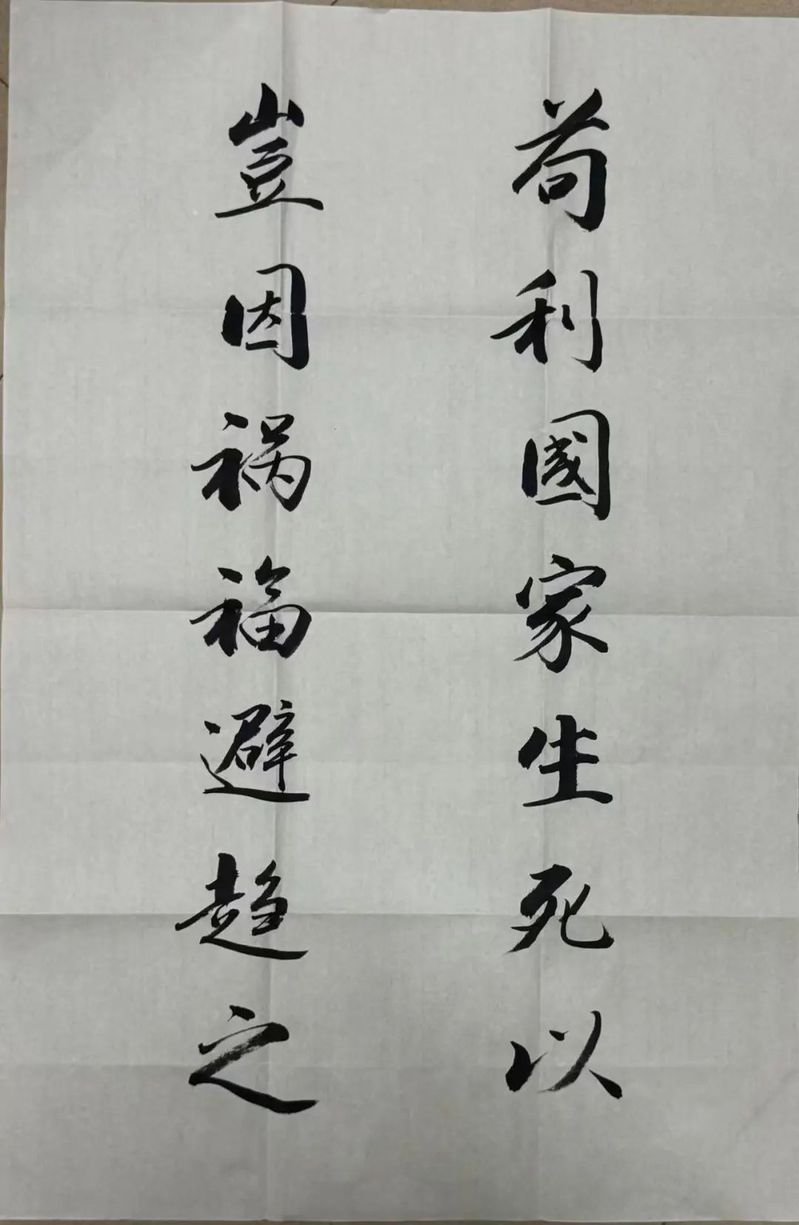 苟利國家生死以
豈因祸福避趋之